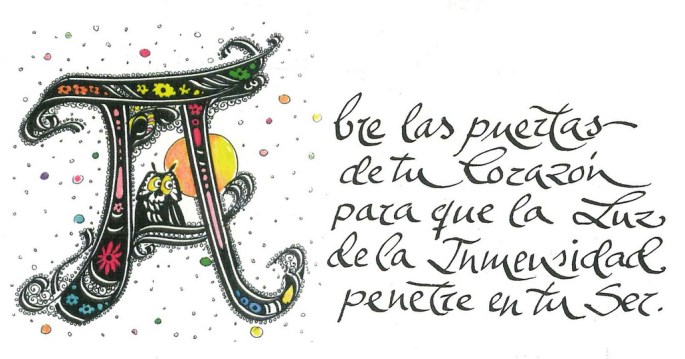 Abre las puertas
de tu Corazón
para que la Luz
de la Inmensidad
penetre en tu Ser.